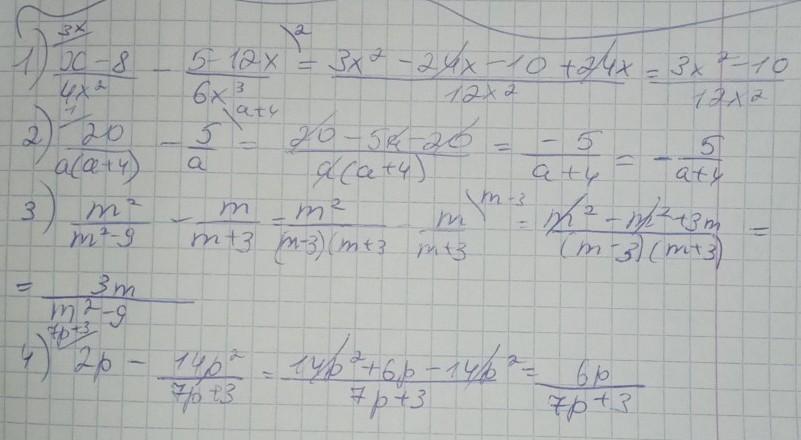 3x 2
1) x-8/4x² - 5-12x/6x³ = 3x²-24x-10+24x/12x² = 3x²-10/12x²
1 a+4
2) 20/a(a+4) - 5/a = 20-5a-20/a(a+4) = -5/a+4 = -5/a+4
m-3
3) m²/m²-9 - m/m+3 = m²/(m-3)(m+3 m/m+3 = m²-m²+3m/(m-3)(m+3) =
= 3m/m²-9
7p+3
4) 2p - 14p²/7p+3 = 14p²+6p-14p²/7p+3 = 6p/7p+3